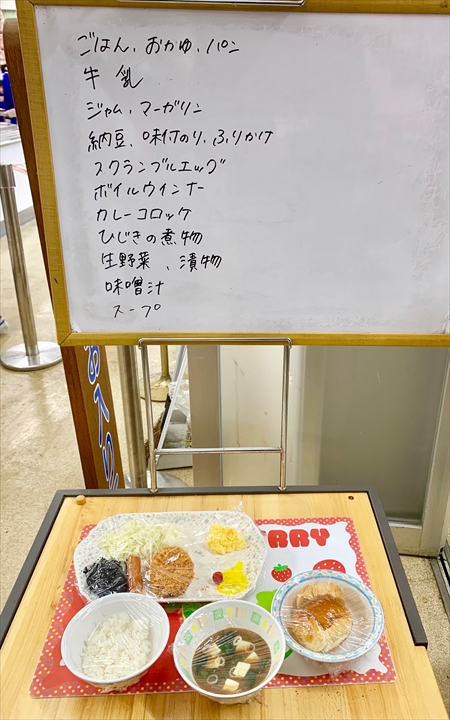 ごはん、おかゆ、パン
牛乳
ジャム、マーガリン
納豆、味付のり、ふりかけ
スクランブルエッグ
ボイルウインナー
カレーコロッケ
ひじきの煮物
生野菜、漬物
味噌汁
スープ
RRY